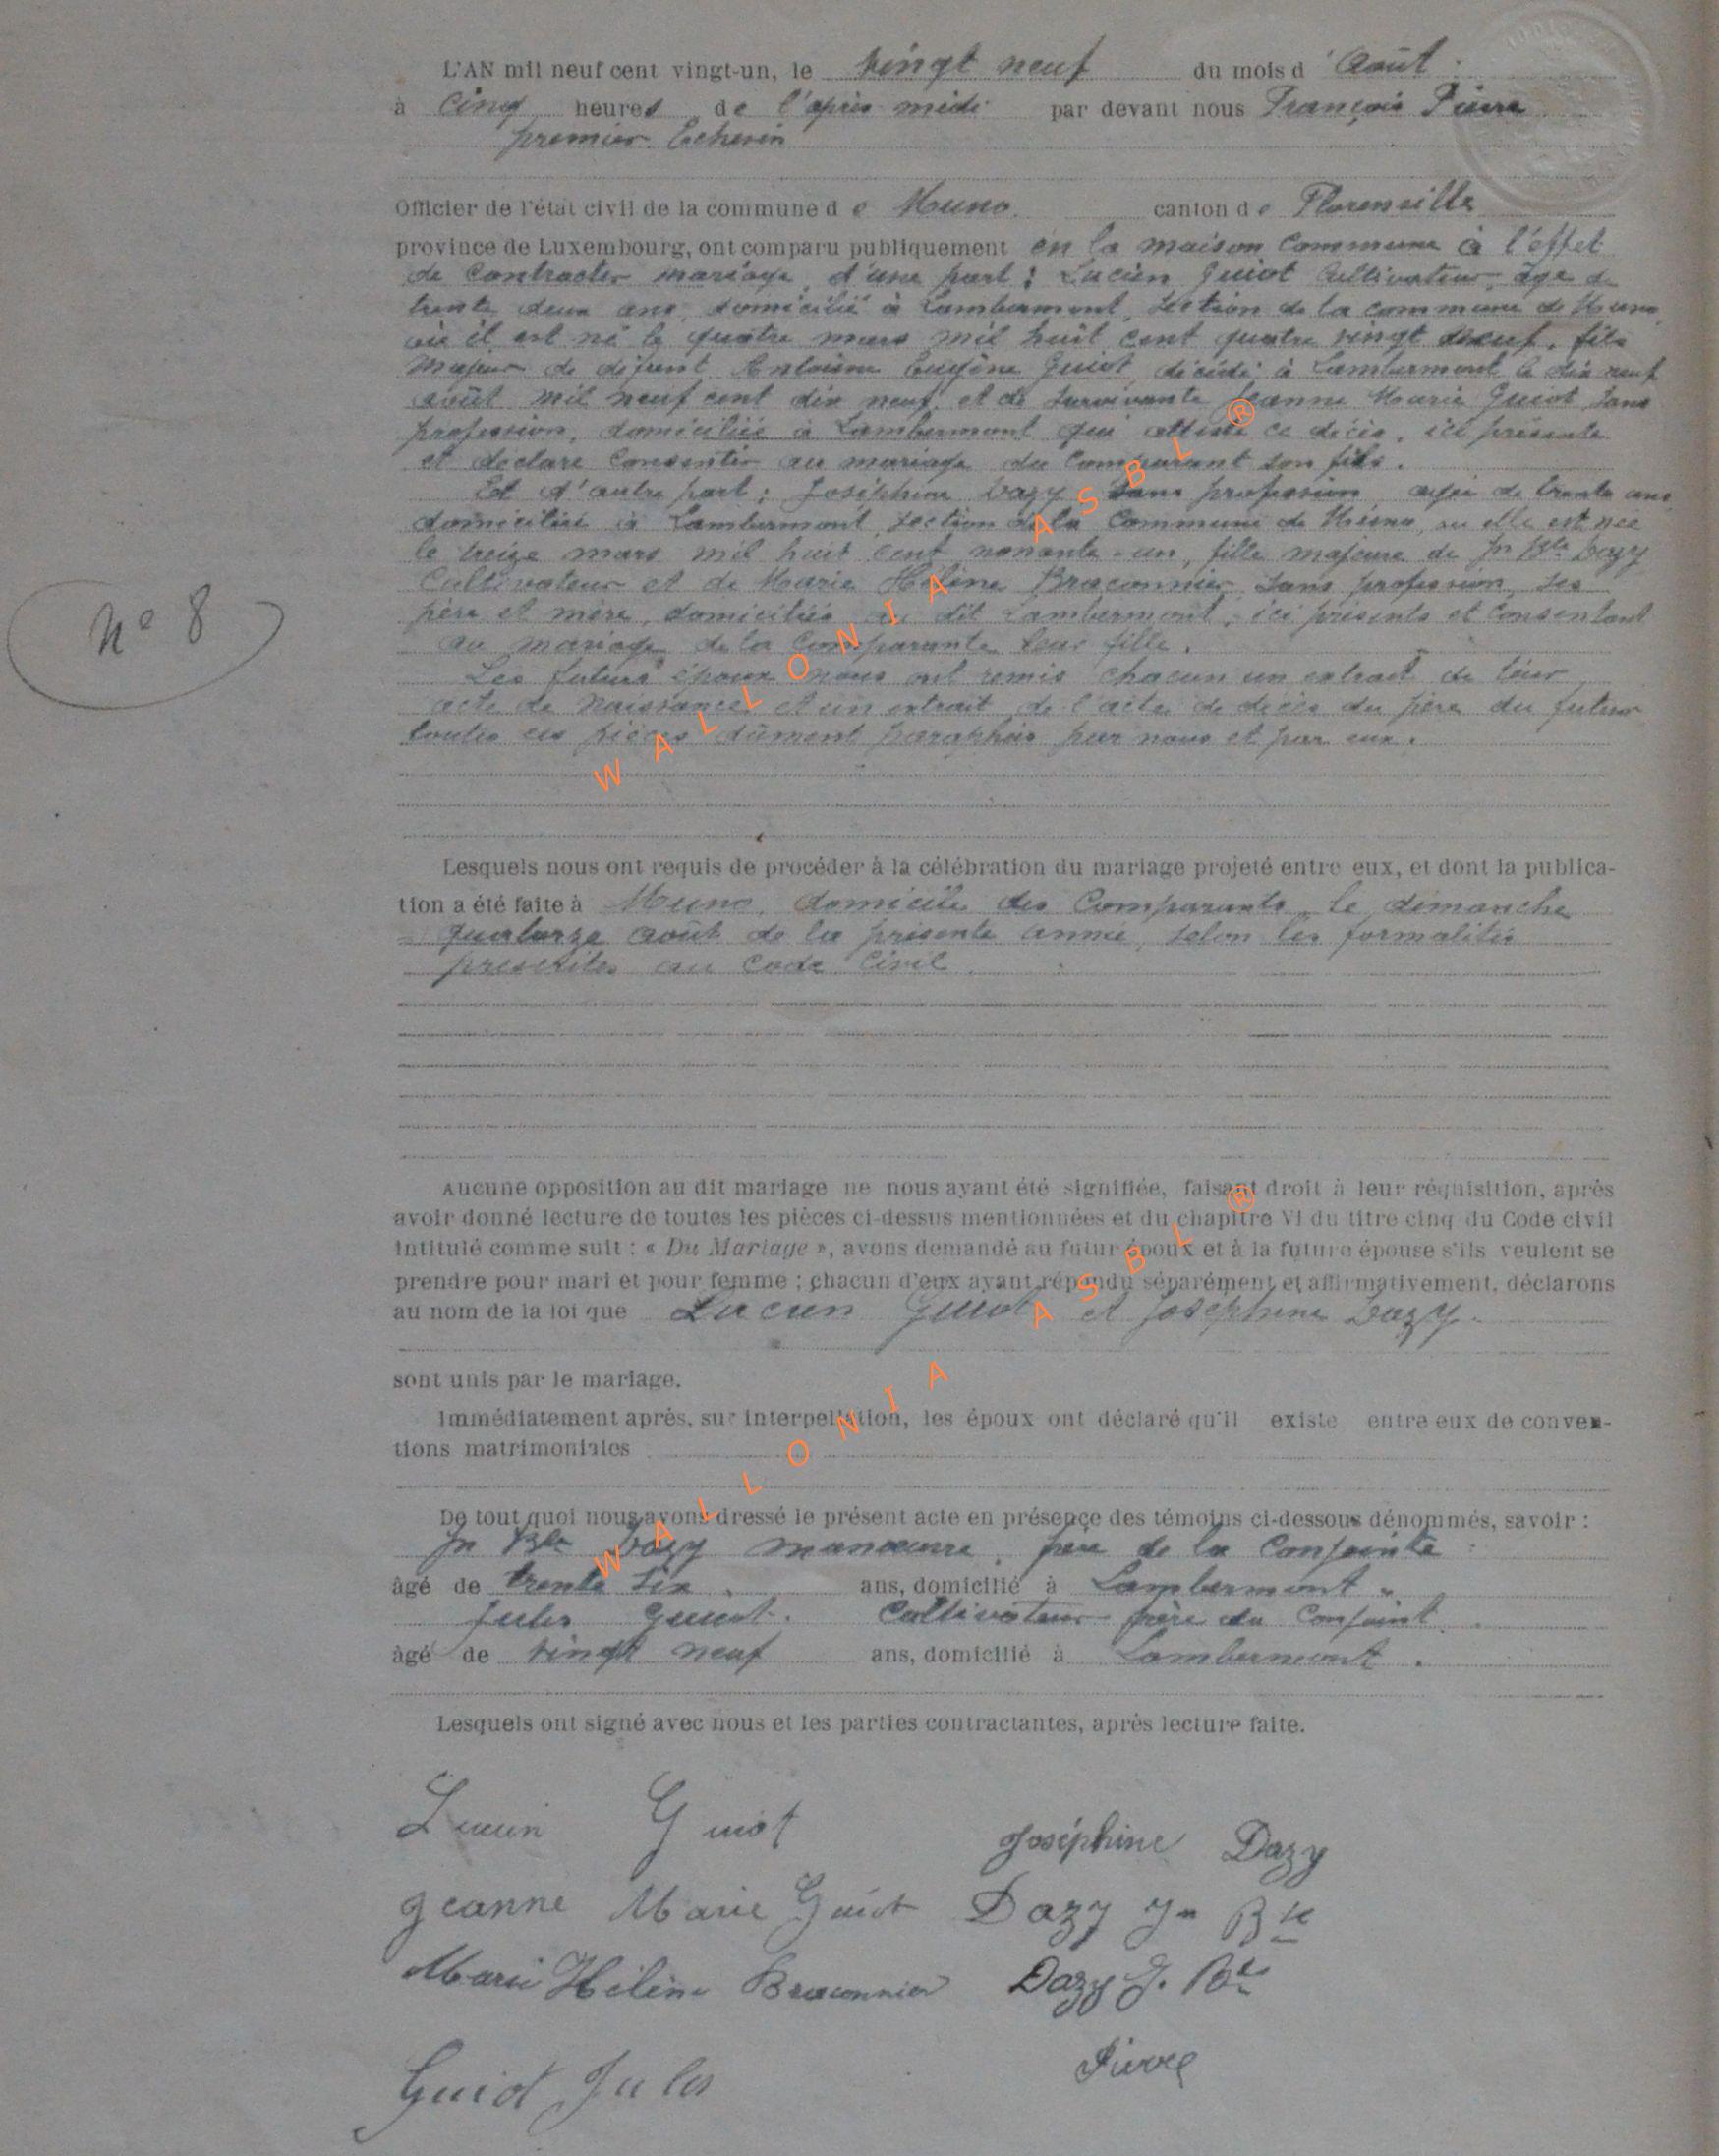 L'AN mil neuf cent vingt-un, le vingt neuf du mois d'Août
à Cinq heures de l'après midi par devant nous François Pierre
premier Echevin
Officier de l'état civil de la commune de Muno canton de Florenville
province de Luxembourg, ont comparu publiquement en la maison Commune à l'effet
de Contracter mariage, d'une part : Lucien Guiot Cultivateur, âgé de
trente deux ans, domicilié à Lambermont, section de la commune de Muno
où il est né le quatre mars mil huit cent quatre vingt neuf, fils
majeur de défunt Antoine Eugène Guiot, décédé à Lambermont le dix neuf
août mil neuf cent dix neuf, et de survivante Jeanne Marie Guiot, sans
profession, domiciliée à Lambermont qui atteste ce décès, ici présente
et déclare Consentir au mariage du Comparant son fils.
Et d'autre part : Joséphine Dazy sans profession, âgée de trente ans,
domiciliée à Lambermont, section de la Commune de Muno, où elle est née
le treize mars mil huit cent nonante-un, fille majeure de Jn Bte Dazy
Cultivateur et de Marie Hélène Braconnier, sans profession, ses
père et mère, domiciliés au dit Lambermont, ici présents et Consentant
au mariage de la Comparante leur fille.
Les futurs époux nous ont remis chacun un extrait de leur
acte de Naissance et un extrait de l'acte de décès du père du futur
toutes ces pièces dûment paraphées par nous et par eux.
N° 8
Lesquels nous ont requis de procéder à la célébration du mariage projeté entre eux, et dont la publica-
tion a été faite à Muno, domicile des Comparants, le dimanche
quatorze août de la présente année, selon les formalités
prescrites au Code Civil.
Aucune opposition au dit mariage ne nous ayant été signifiée, faisant droit à leur réquisition, après
avoir donné lecture de toutes les pièces ci-dessus mentionnées et du chapitre VI du titre cinq du Code civil
intitulé comme suit : « Du Mariage », avons demandé au futur époux et à la future épouse s'ils veulent se
prendre pour mari et pour femme ; chacun d'eux ayant répondu séparément et affirmativement, déclarons
au nom de la loi que Lucien Guiot et Joséphine Dazy.
sont unis par le mariage.
Immédiatement après, sur interpellation, les époux ont déclaré qu'il existe entre eux de conven-
tions matrimoniales
De tout quoi nous avons dressé le présent acte en présence des témoins ci-dessous dénommés, savoir :
Jn Bte Dazy manœuvre, père de la Conjointe
âgé de trente six ans, domicilié à Lambermont.
Jules Guiot. Cultivateur frère du Conjoint
âgé de vingt neuf ans, domicilié à Lambermont.
Lesquels ont signé avec nous et les parties contractantes, après lecture faite.
Lucien Guiot
Joséphine Dazy
Jeanne Marie Guiot Dazy Jn Bte
Marie Hélène Braconnier Dazy J. Bte
Pierre
Guiot Jules
WALLONIA ASBL ®
WALLONIA ASBL ®